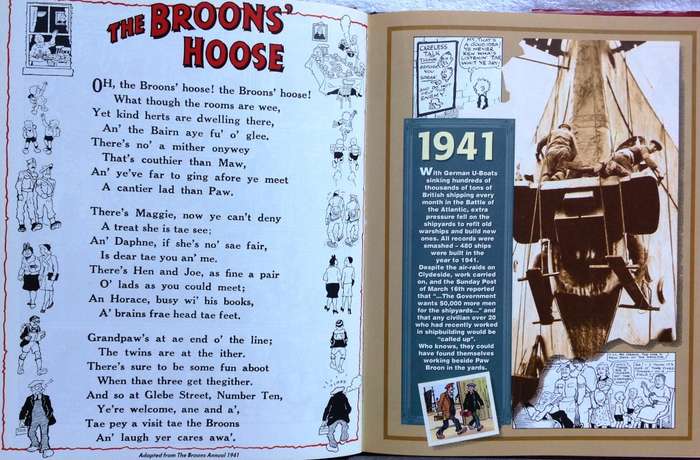 THE BROONS'
HOOSE
OH, the Broons' hoose! the Broons' hoose!
What though the rooms are wee,
Yet kind herts are dwelling there,
An' the Bairn aye fu' o' glee.
There's no' a mither onywey
That's couthier than Maw,
An' ye've far to ging afore ye meet
A cantier lad than Paw.
There's Maggie, now ye can't deny
A treat she is tae see;
An' Daphne, if she's no' sae fair,
Is dear tae you an' me.
There's Hen and Joe, as fine a pair
O' lads as you could meet;
An Horace, busy wi' his books,
A' brains frae head tae feet.
Grandpaw's at ae end o' the line;
The twins are at the ither.
There's sure to be some fun aboot
When thae three get thegither.
And so at Glebe Street, Number Ten,
Ye're welcome, ane and a',
Tae pey a visit tae the Broons
An' laugh yer cares awa'.
Adapted from The Broons Annual 1941
CARELESS
TALK
THINK
BEFORE
YOU
SPEAK
MY, THAT'S
A GOOD IDEA!
YE NEVER
KEN WHA'S
LISTENIN' TAE
WHIT YE SAY!
1941
With German U-Boats
sinking hundreds of
thousands of tons of
British shipping every
month in the Battle of
the Atlantic, extra
pressure fell on the
shipyards to refit old
warships and build new
ones. All records were
smashed – 480 ships
were built in the
year to 1941.
Despite the air-raids on
Clydeside, work carried
on, and the Sunday Post
of March 16th reported
that "...The Government
wants 50,000 more men
for the shipyards..." and
that any civilian over 20
who had recently worked
in shipbuilding would be
"called up".
Who knows, they could
have found themselves
working beside Paw
Broon in the yards.